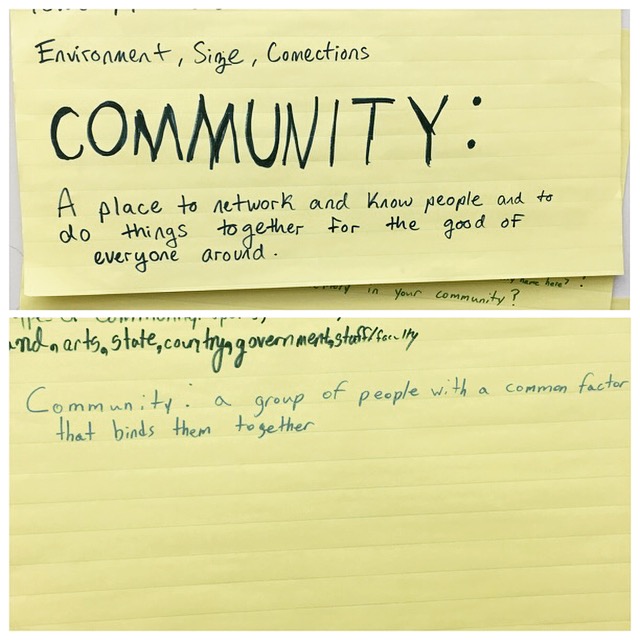 Environment, Size, Connections
COMMUNITY:
A place to network and know people and to
do things together for the good of
everyone around.
name here?
in your community?
and, arts, state, country, government, staff/faculty
Community: a group of people with a common factor
that binds them together